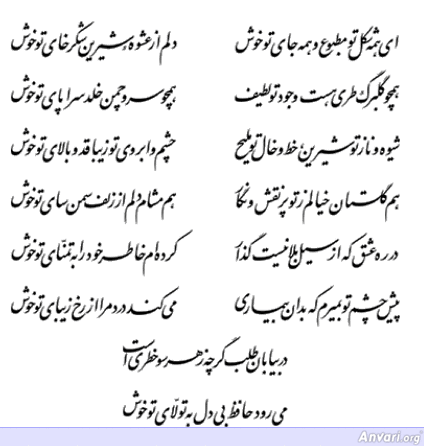 ای همه شکل تو مطبوع و همه جای تو خوش دلم از عشوه شیرین شکرخای تو خوش
همچو گلبرگ طری هست وجود تو لطیف همچو سرو چمن خلد سراپای تو خوش
شیوه و ناز تو شیرین خط و خال تو ملیح چشم و ابروی تو زیبا قد و بالای تو خوش
هم گلستان خیالم ز تو پر نقش و نگار هم مشام دلم از زلف سمن سای تو خوش
در ره عشق که از سیل بلا نیست گذار کرده‌ام خاطر خود را به تمنای تو خوش
پیش چشم تو بمیرم که بدان بیماری می‌کند درد مرا از رخ زیبای تو خوش
در بیابان طلب گرچه ز هر سو خطری است
می‌رود حافظ بی دل به تولای تو خوش
Anvari.org